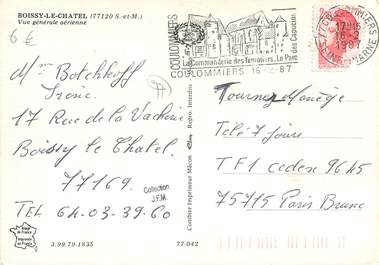 BOISSY-LE-CHATEL (77120 S.-et-M.)
Vue générale aérienne
6€
COULOMMIERS
La Commanderie des Templiers. Le Parc des Capucins
COULOMMIERS 16-2-87
77 COULOMMIERS
17H15
16-2
1987
SEINE-ET-MARNE
Mme Botchkoff
Irenic
17 Rue de la Vacherie
Boissy le Chatel.
77169.
TEL 64.03.39.60
Collection
J.F.M.
Combier Imprimeur Mâcon
Repro. Interdite
Tournez Manège
Télé 7 jours
TF1 cedex 9645
75715 Paris Brune
Imprimé en France
3.99.79.1835
77.042